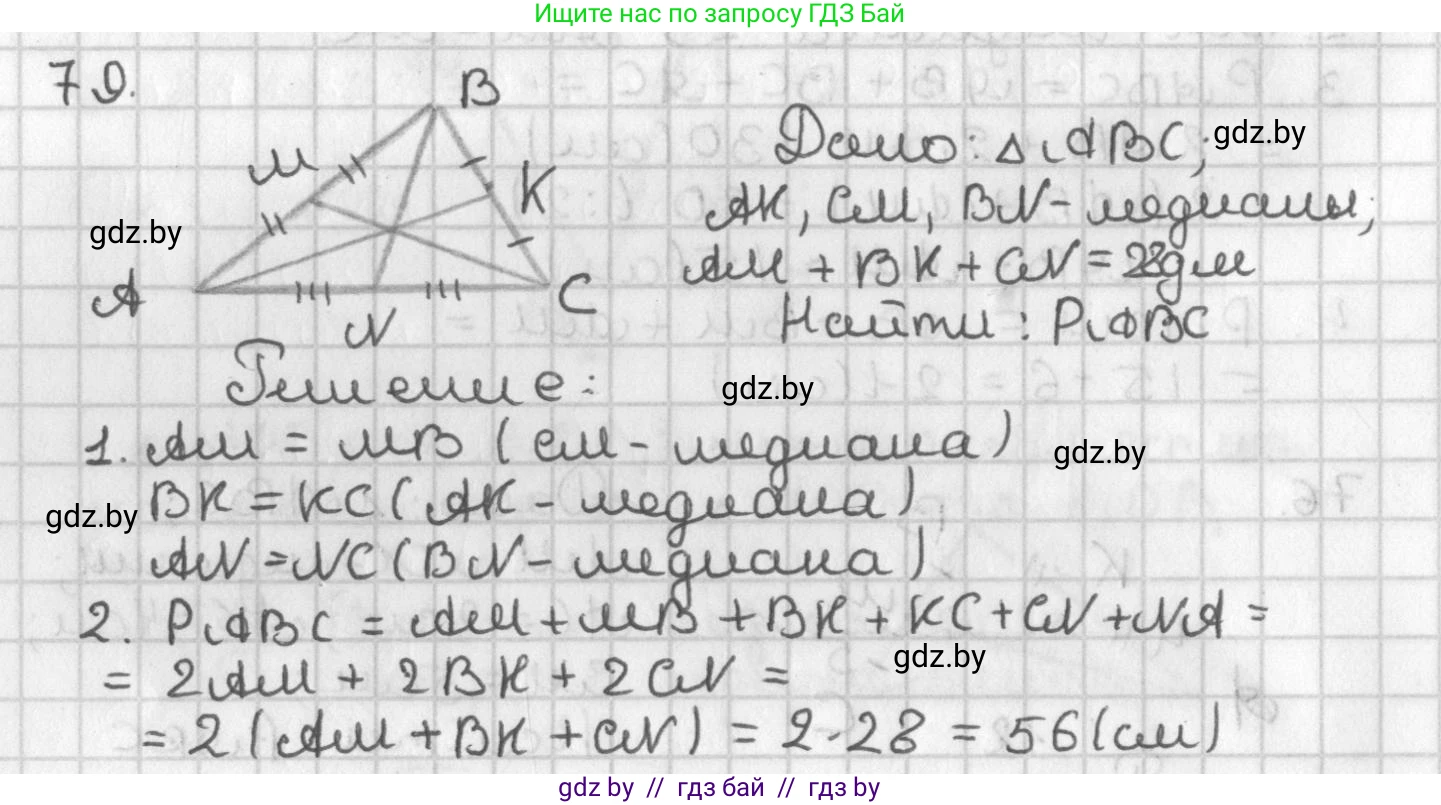 Ищите нас по запросу ГДЗ Бай
79.
B
M
K
A
N
C
Дано: △ABC; gdz.by
AK, CM, BN - медианы;
gdz.by
AM + BK + CN = 28дм
Найти: PABC
Решение:
gdz.by
1. AM = MB (CM - медиана)
gdz.by
BK = KC (AK - медиана)
gdz.by
AN = NC (BN - медиана)
2. PABC = AM + MB + BK + KC + CN + NA =
gdz.by
= 2AM + 2BK + 2CN =
= 2 (AM + BK + CN) = 2 · 28 = 56 (см)
gdz.by // гдз бай // gdz.by